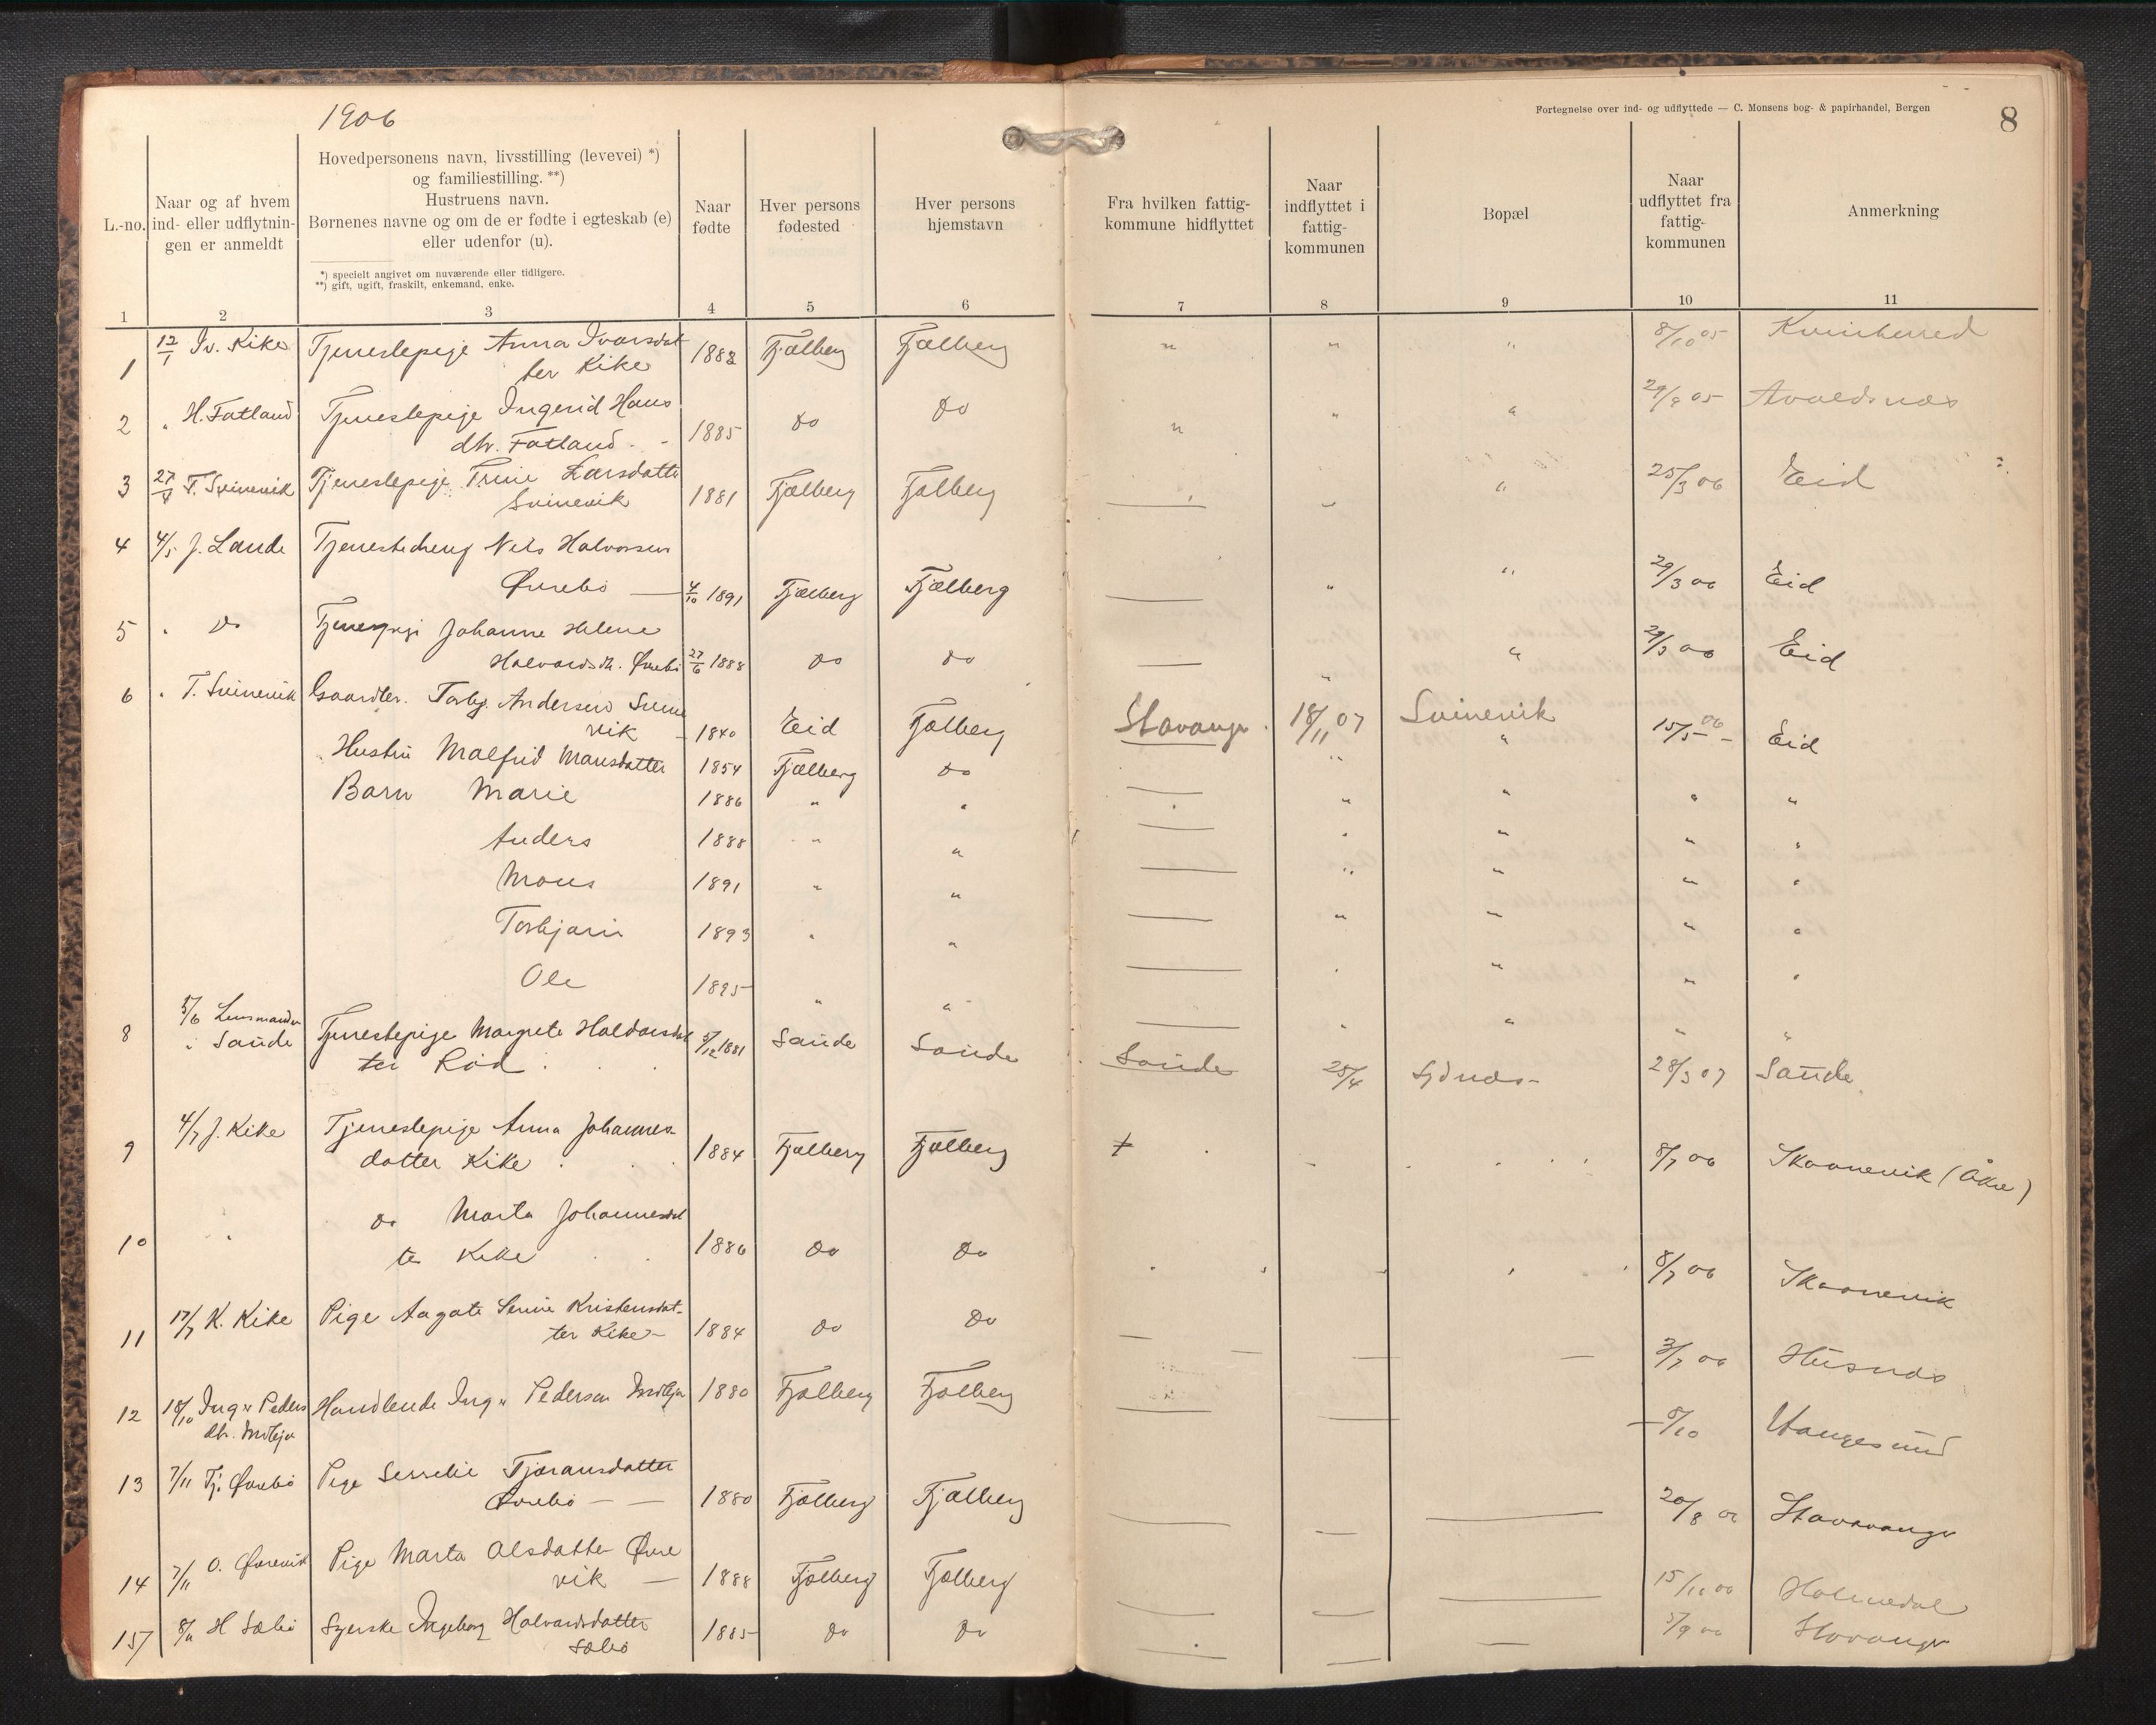 1906
Fortegnelse over ind- og udflyttede — C. Monsens bog- & papirhandel, Bergen
8
L.-no.
Naar og af hvem
ind- eller udflytnin-
gen er anmeldt
Hovedpersonens navn, livsstilling (levevei) *)
og familiestilling. **)
Hustruens navn.
Børnenes navne og om de er fødte i egteskab (e)
eller udenfor (u).
*) specielt angivet om nuværende eller tidligere.
**) gift, ugift, fraskilt, enkemand, enke.
Naar
fødte
Hver persons
fødested
Hver persons
hjemstavn
Fra hvilken fattig-
kommune hidflyttet
Naar
indflyttet i
fattig-
kommunen
Bopæl
Naar
udflyttet fra
fattig-
kommunen
Anmerkning
1 2 3 4 5 6 7 8 9 10 11
1 12/1 Iv. Kike Tjenestepige Anna Ivarsdat- 1882 Fjælberg Fjælberg " " " 8/10 05 Kvinherred
ter Kike
2 " H. Fatland Tjenestepige Ingerid Hans Do Do " " " 29/9 05 Avaldsnæs
dtr. Fatland - - 1885
3 27/4 T. Svinevik Tjenestepige Trine Larsdatter 1881 Fjælberg Fjælberg — " " 25/3 06 Eid
Svinevik
4 4/5 J. Lande Tjenestedreng Nils Halvorsen
Øvrebø — 4/10 1891 Fjælberg Fjælberg — " " 29/3 06 Eid
5 " Do Tjenestepige Johanne Helene
Halvorsdtr. Øvrebø 27/6 1888 Do Do — " " 29/3 06 Eid
6 " T. Svinevik Gaardbr. Torbj. Andersen Svine
vik - 1840 Eid Fjælberg Stavanger 18/11 07 Svinevik 15/5 06 - Eid
Hustru Malfrid Monsdatter 1854 Fjælberg Do — " "
Barn Marie 1886 " " — " " " "
Anders 1888 " " — " " " "
Mons 1891 " " — " " " "
Torbjørn 1893 " " — " " " "
Ole 1895 " " — " " " "
8 5/6 Lensmanden
" Saude Tjenestepige Margrete Haldorsdat 5/12 1881 Saude Saude Saude 25/4 28/3 07 Saude
ter Rød
9 4/7 J. Kike Tjenestepige Anna Johannes-
datter Kike 1884 Fjælberg Fjælberg 8/7 06 Skaanevik (Åkre)
10 " Do Marta Johannesdat
ter Kike 1886 Do Do 8/7 06 Skaanevik
11 17/7 K. Kike Pige Aagate Serine Kristensdat-
ter Kike - 1884 Do Do — — — — 3/7 06 Husnæs
12 18/10 Ing. Peders Handlende Ing. Pedersen 1880 Fjælberg Fjælberg — — 8/10 Haugesund
dtr.
13 7/11 Tj. Øvrebø Pige Serselie Tjøransdatter
Øvrebø — — 1880 Fjælberg Fjælberg — — — 20/8 06 Stavanger
14 7/11 O. Øvrevik Pige Marta Olsdatter Øvre
vik — 1888 Fjælberg Fjælberg — — — 15/10 06 Holmedal
15 8/11 H Sæbø Syerske Ingeborg Halvardsdatter 1885 Do Do — — — 5/9 06 Stavanger
Sæbø